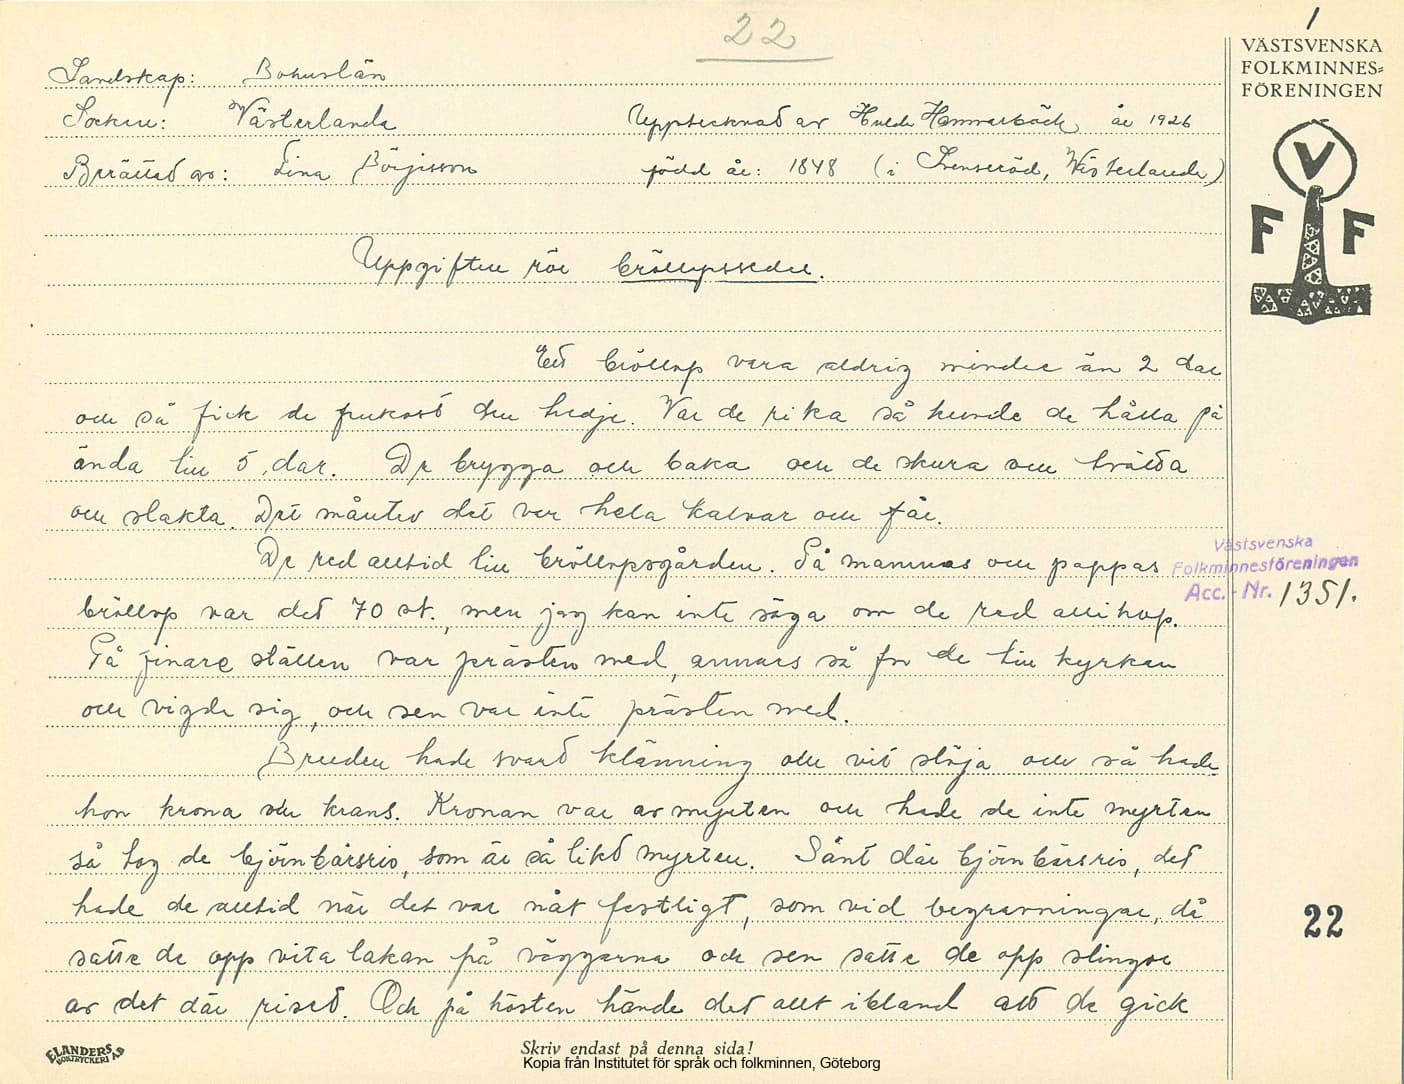 22
1
VÄSTSVENSKA
FOLKMINNES=
FÖRENINGEN
V
F F
Landskap: Bohuslän
Socken: Västerlanda Upptecknad av Hulda Hammarbäck år 1926
Berättad av: Lina Börjesson född år: 1848 (i Svenseröd, Västerlanda)
Uppgiften rör bröllopsseder.
Ett bröllop vara aldrig mindre än 2 dar
och så fick de frukost den tredje. Var de rika så kunde de hålla på
ända till 5 dar. De brygga och baka och de skura och tvätta
och slakta. Det måntro det var hela kalvar och får.
De red alltid till bröllopsgården. På mammas och pappas
bröllop var det 70 st., men jag kan inte säga om de red allihop.
På finare ställen var prästen med, annars så for de till kyrkan
och vigde sig, och sen var inte prästen med.
Bruden hade svart klänning och vit slöja och så hade
hon krona och krans. Kronan var av myrten och hade de inte myrten
så tog de björnbärsris, som är så likt myrten. Sånt där björnbärsris, det
hade de alltid när det var nåt festligt, som vid begravningar, då
satte de opp vita lakan på väggarna och sen satte de opp slingor
av det där riset. Och på hösten hände det allt ibland att de gick
Västsvenska
Folkminnesföreningen
Acc.-Nr. 1351.
22
ELANDERS
BOKTRYCKERI AB
Skriv endast på denna sida!
Kopia från Institutet för språk och folkminnen, Göteborg